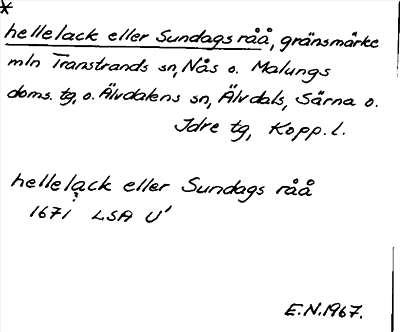 *
hellelack eller Sundags råå, gränsmärke
mln Transtrands sn, Nås o. Malungs
doms. tg, o. Älvdalens sn, Älvdals, Särna o.
Idre tg, Kopp. l.
hellelack eller Sundags råå
1671 LSA U'
E.N. 1967.